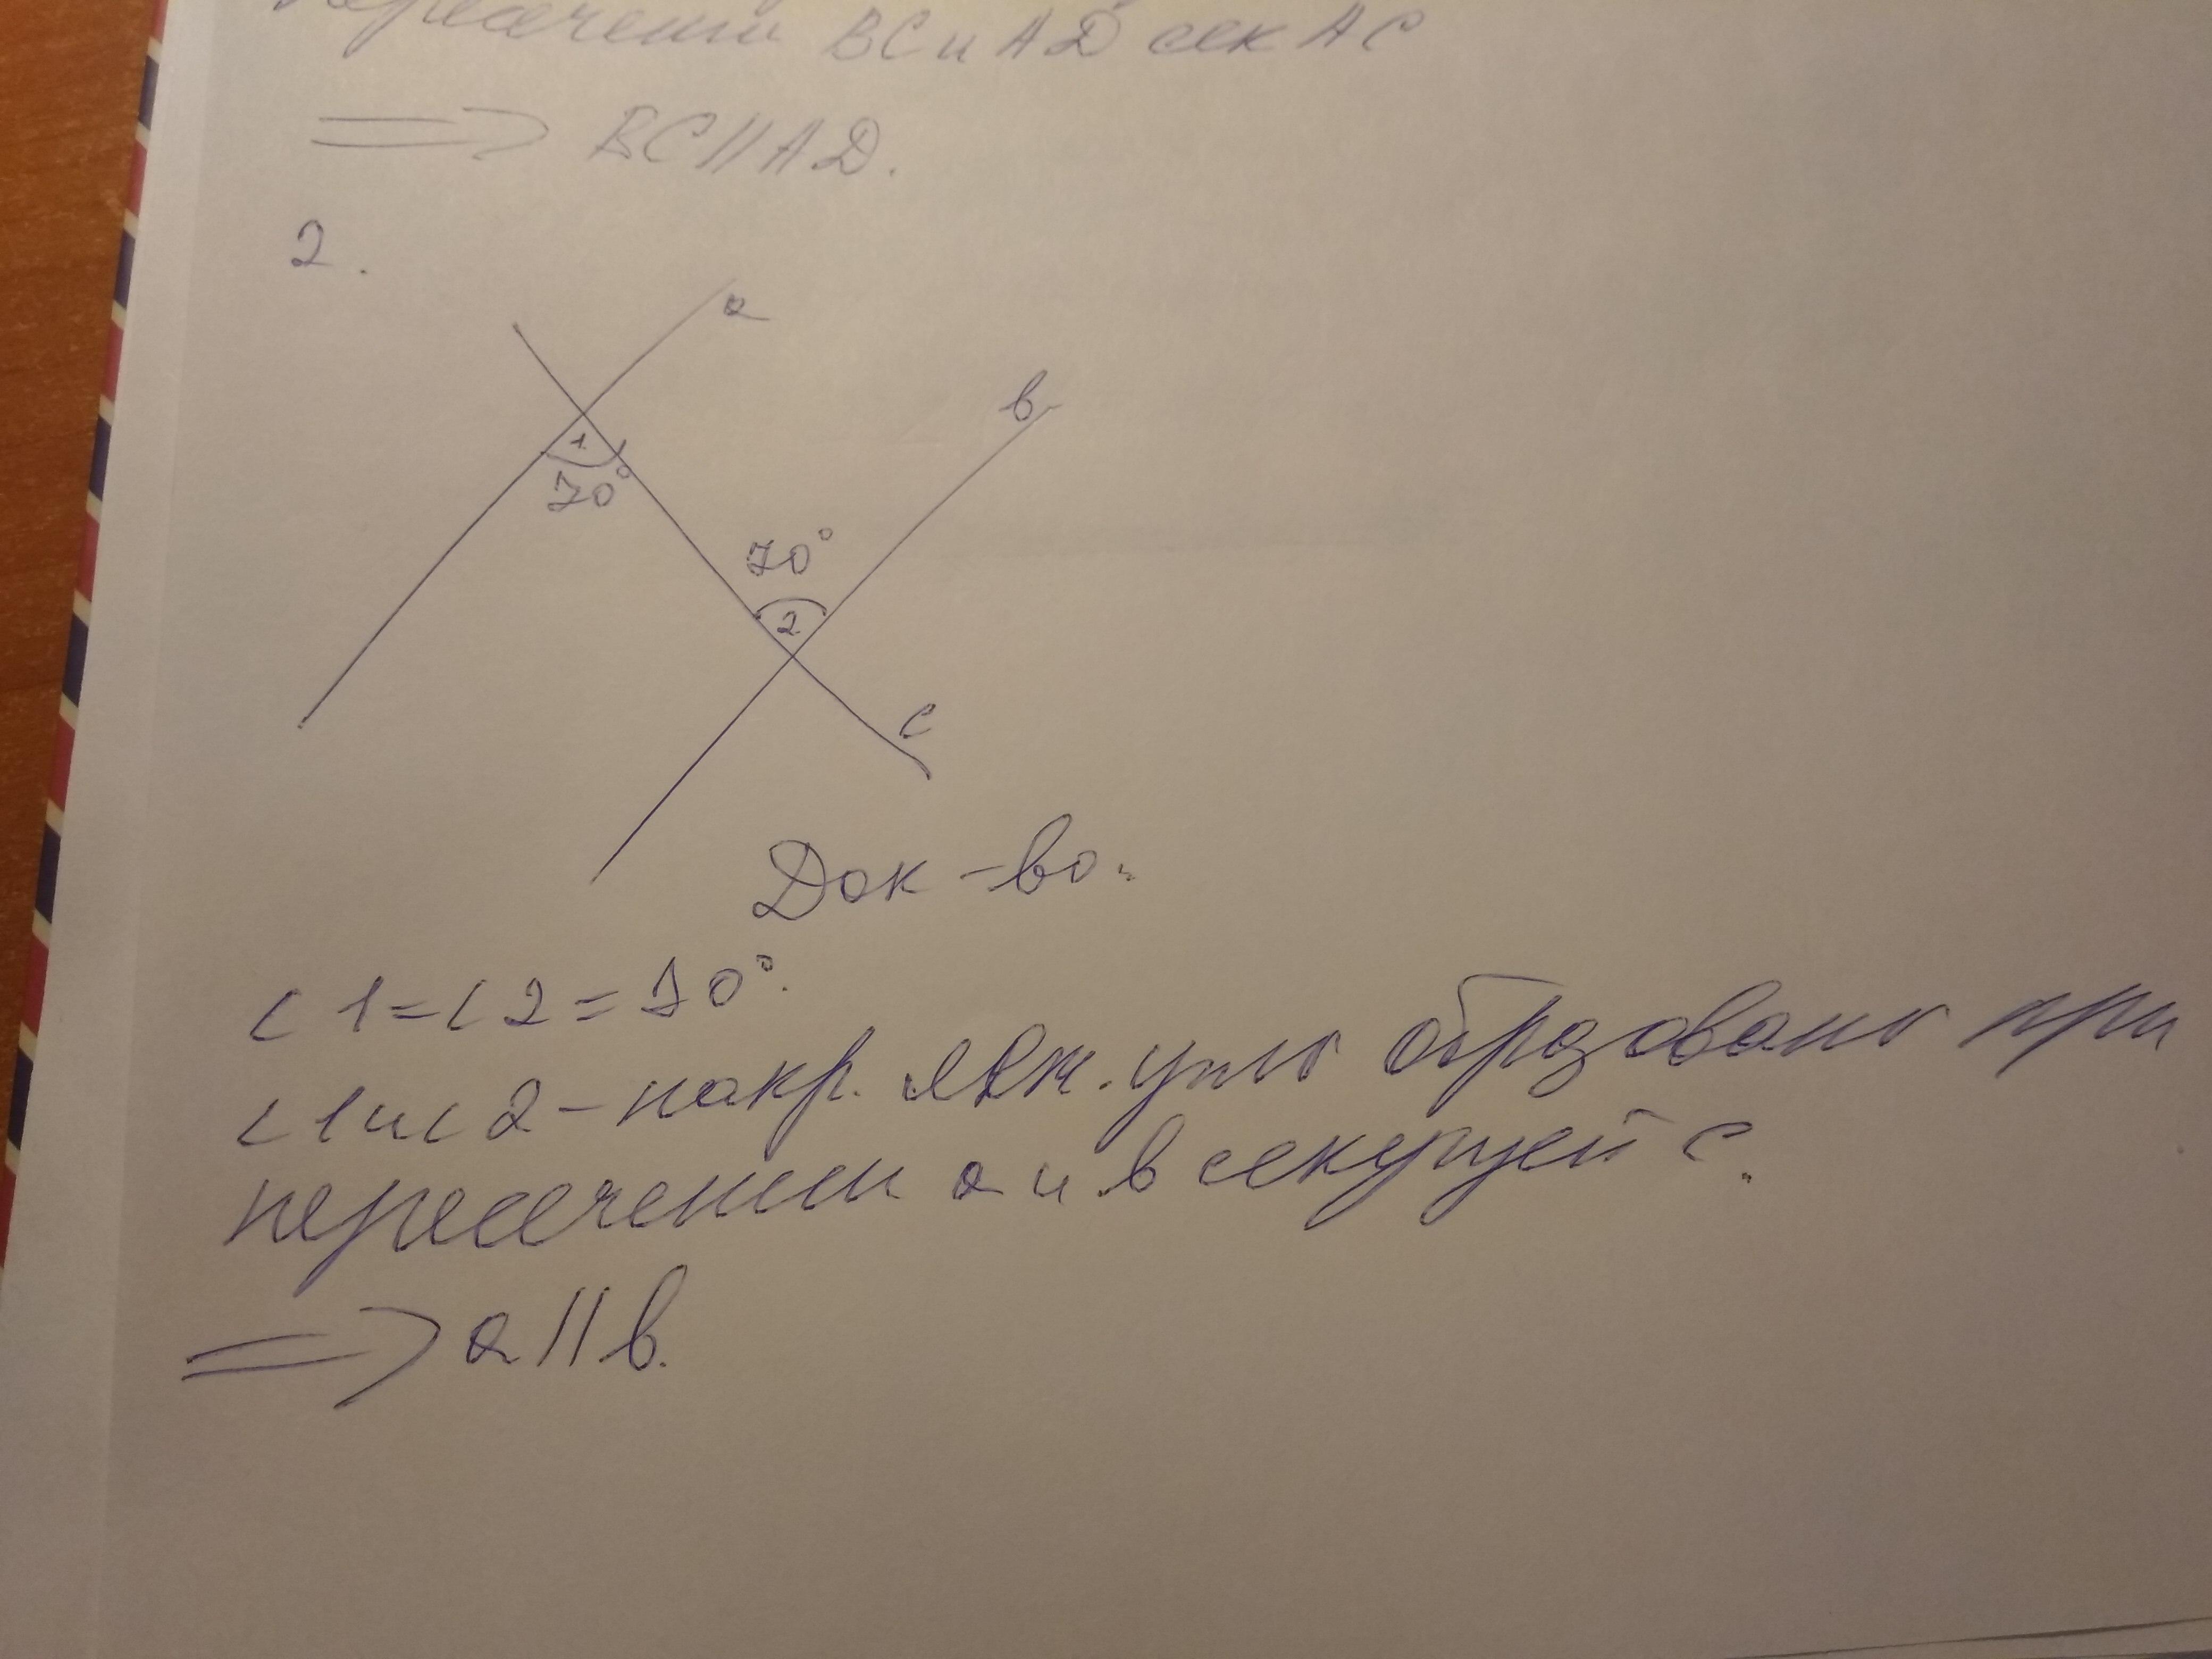 пересечении BC и AD сек AC
⟹ BC||AD.
2.
a
b
1
70°
70°
2
c
Док-во.
∠1=∠2=70°.
∠1 и ∠2 - накр. леж. углы образованы при
пересечении a и b секущей c.
⟹ a||b.